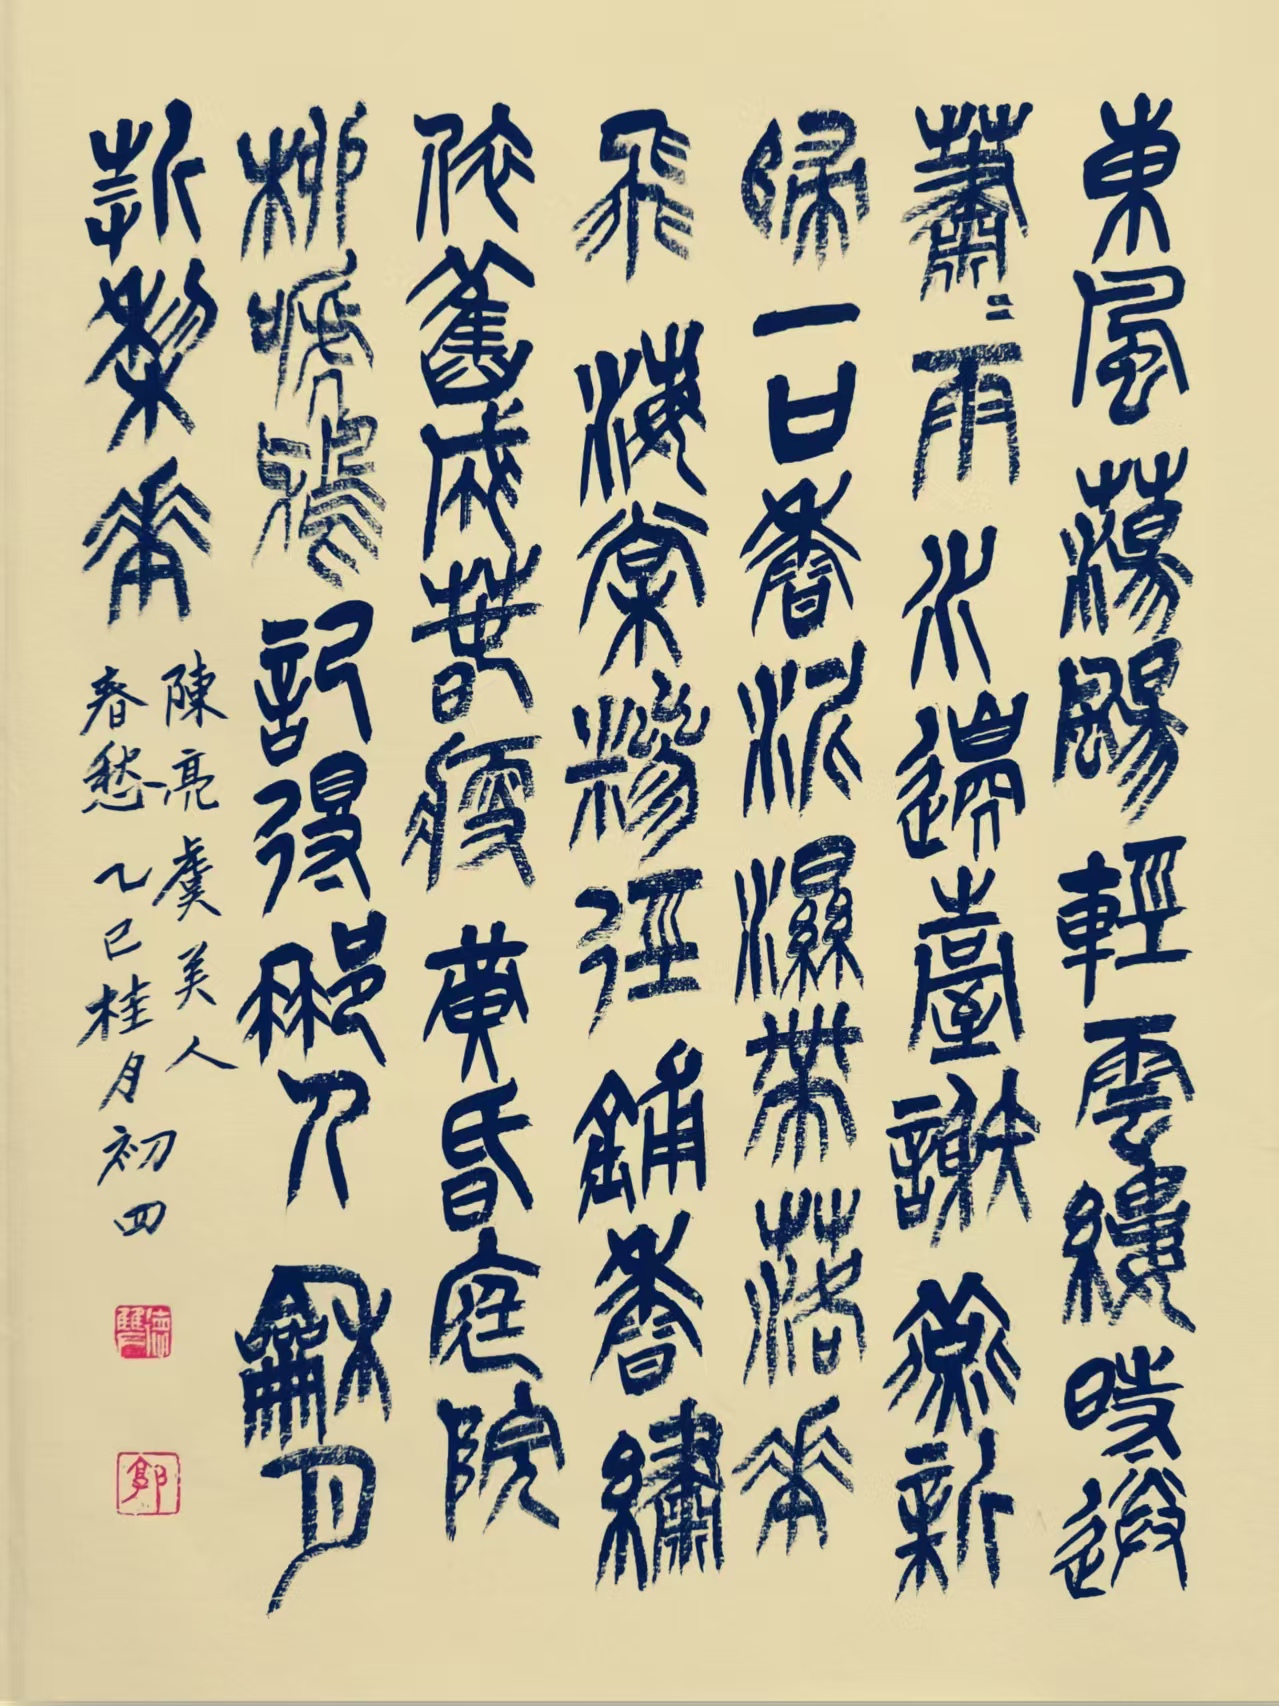 東風蕩颺輕雲縷時送
蕭〻雨水邊臺謝燕新
歸一口香泥濕帶落花
飛海棠糝徑鋪香繡
依舊成春瘦黃昏庭院
柳啼鴉記得那人龢月
折梨花
陳亮虞美人
春愁 乙巳桂月初四
郭